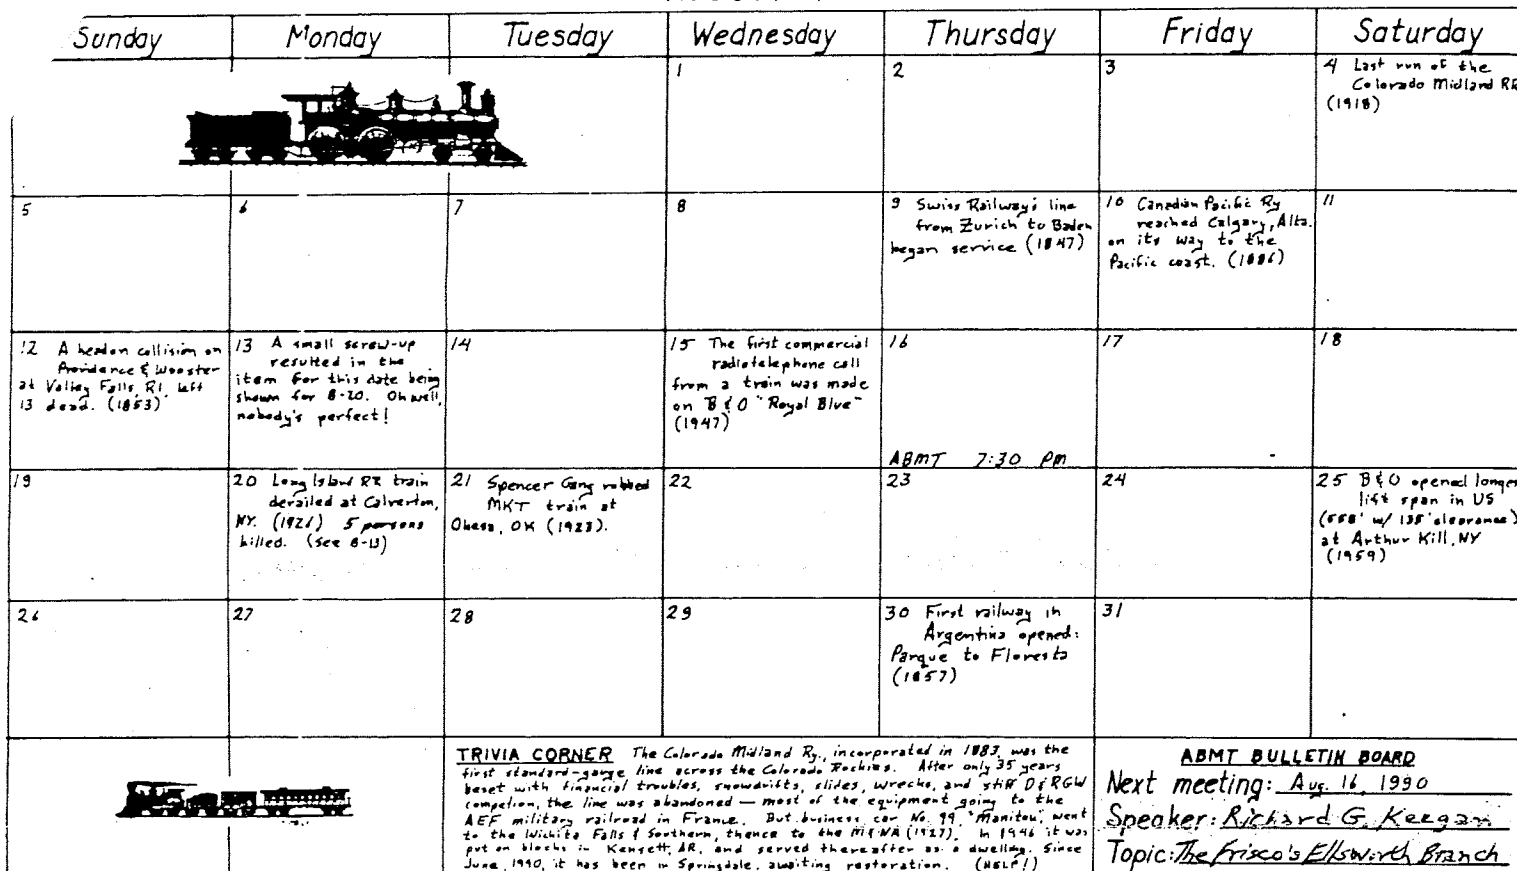 Sunday Monday Tuesday Wednesday Thursday Friday Saturday
1
2
3
4 Last run of the
Colorado Midland RR
(1918)
5
6
7
8
9 Swiss Railways line
from Zurich to Baden
began service (1847)
10 Canadian Pacific Ry
reached Calgary, Alta.
on its way to the
Pacific coast. (1886)
11
12 A headon collision on
Providence & Wooster
at Valley Falls, RI, left
13 dead. (1853)
13 A small screw-up
resulted in the
item for this date being
shown for 8-20. Oh well,
nobody's perfect!
14
15 The first commercial
radiotelephone call
from a train was made
on B&O "Royal Blue"
(1947)
16
ABMT 7:30 PM
17
18
19
20 Long Island RR train
derailed at Calverton,
NY. (1926) 5 persons
killed. (See 8-13)
21 Spencer Gang robbed
MKT train at
Okesa, OK (1923).
22
23
24
25 B&O opened longest
lift span in US
(558' w/ 135' clearance)
at Arthur Kill, NY
(1959)
26
27
28
29
30 First railway in
Argentina opened:
Parque to Floresta
(1857)
31
TRIVIA CORNER The Colorado Midland Ry., incorporated in 1883, was the
first standard-gauge line across the Colorado Rockies. After only 35 years
beset with financial troubles, snowdrifts, slides, wrecks, and stiff D&RGW
competion, the line was abandoned — most of the equipment going to the
AEF military railroad in France. But business car No. 99, "Manitou", went
to the Wichita Falls & Southern, thence to the M&NA (1927). In 1946 it was
put on blocks in Kensett, AR, and served thereafter as a dwelling. Since
June, 1990, it has been in Springdale, awaiting restoration. (HELP!)
ABMT BULLETIN BOARD
Next meeting: Aug. 16, 1990
Speaker: Richard G. Keegan
Topic: The Frisco's Ellsworth Branch